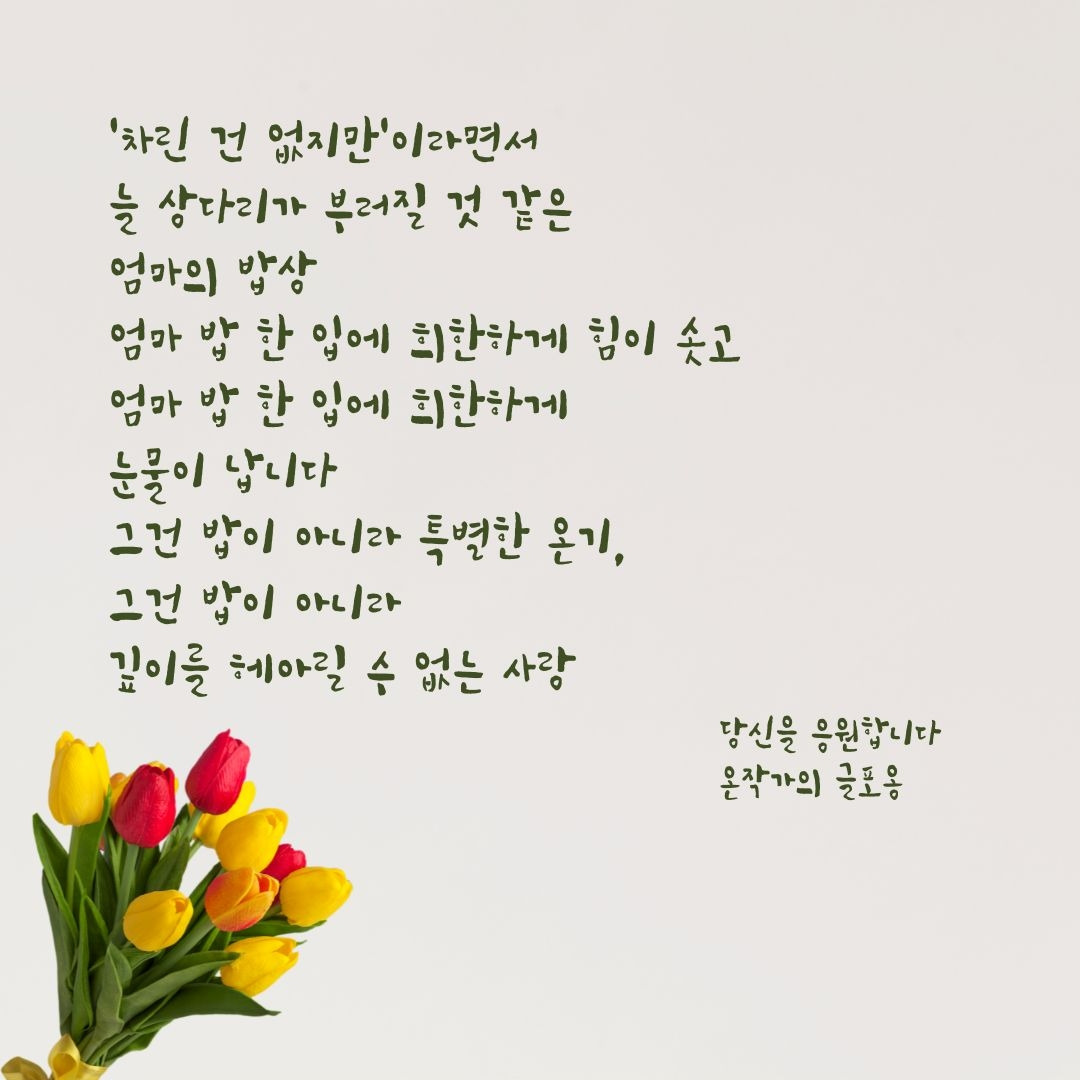 '차린 건 없지만'이라면서
늘 상다리가 부러질 것 같은
엄마의 밥상
엄마 밥 한 입에 희한하게 힘이 솟고
엄마 밥 한 입에 희한하게
눈물이 납니다
그건 밥이 아니라 특별한 온기,
그건 밥이 아니라
깊이를 헤아릴 수 없는 사랑
당신을 응원합니다
온작가의 글포옹